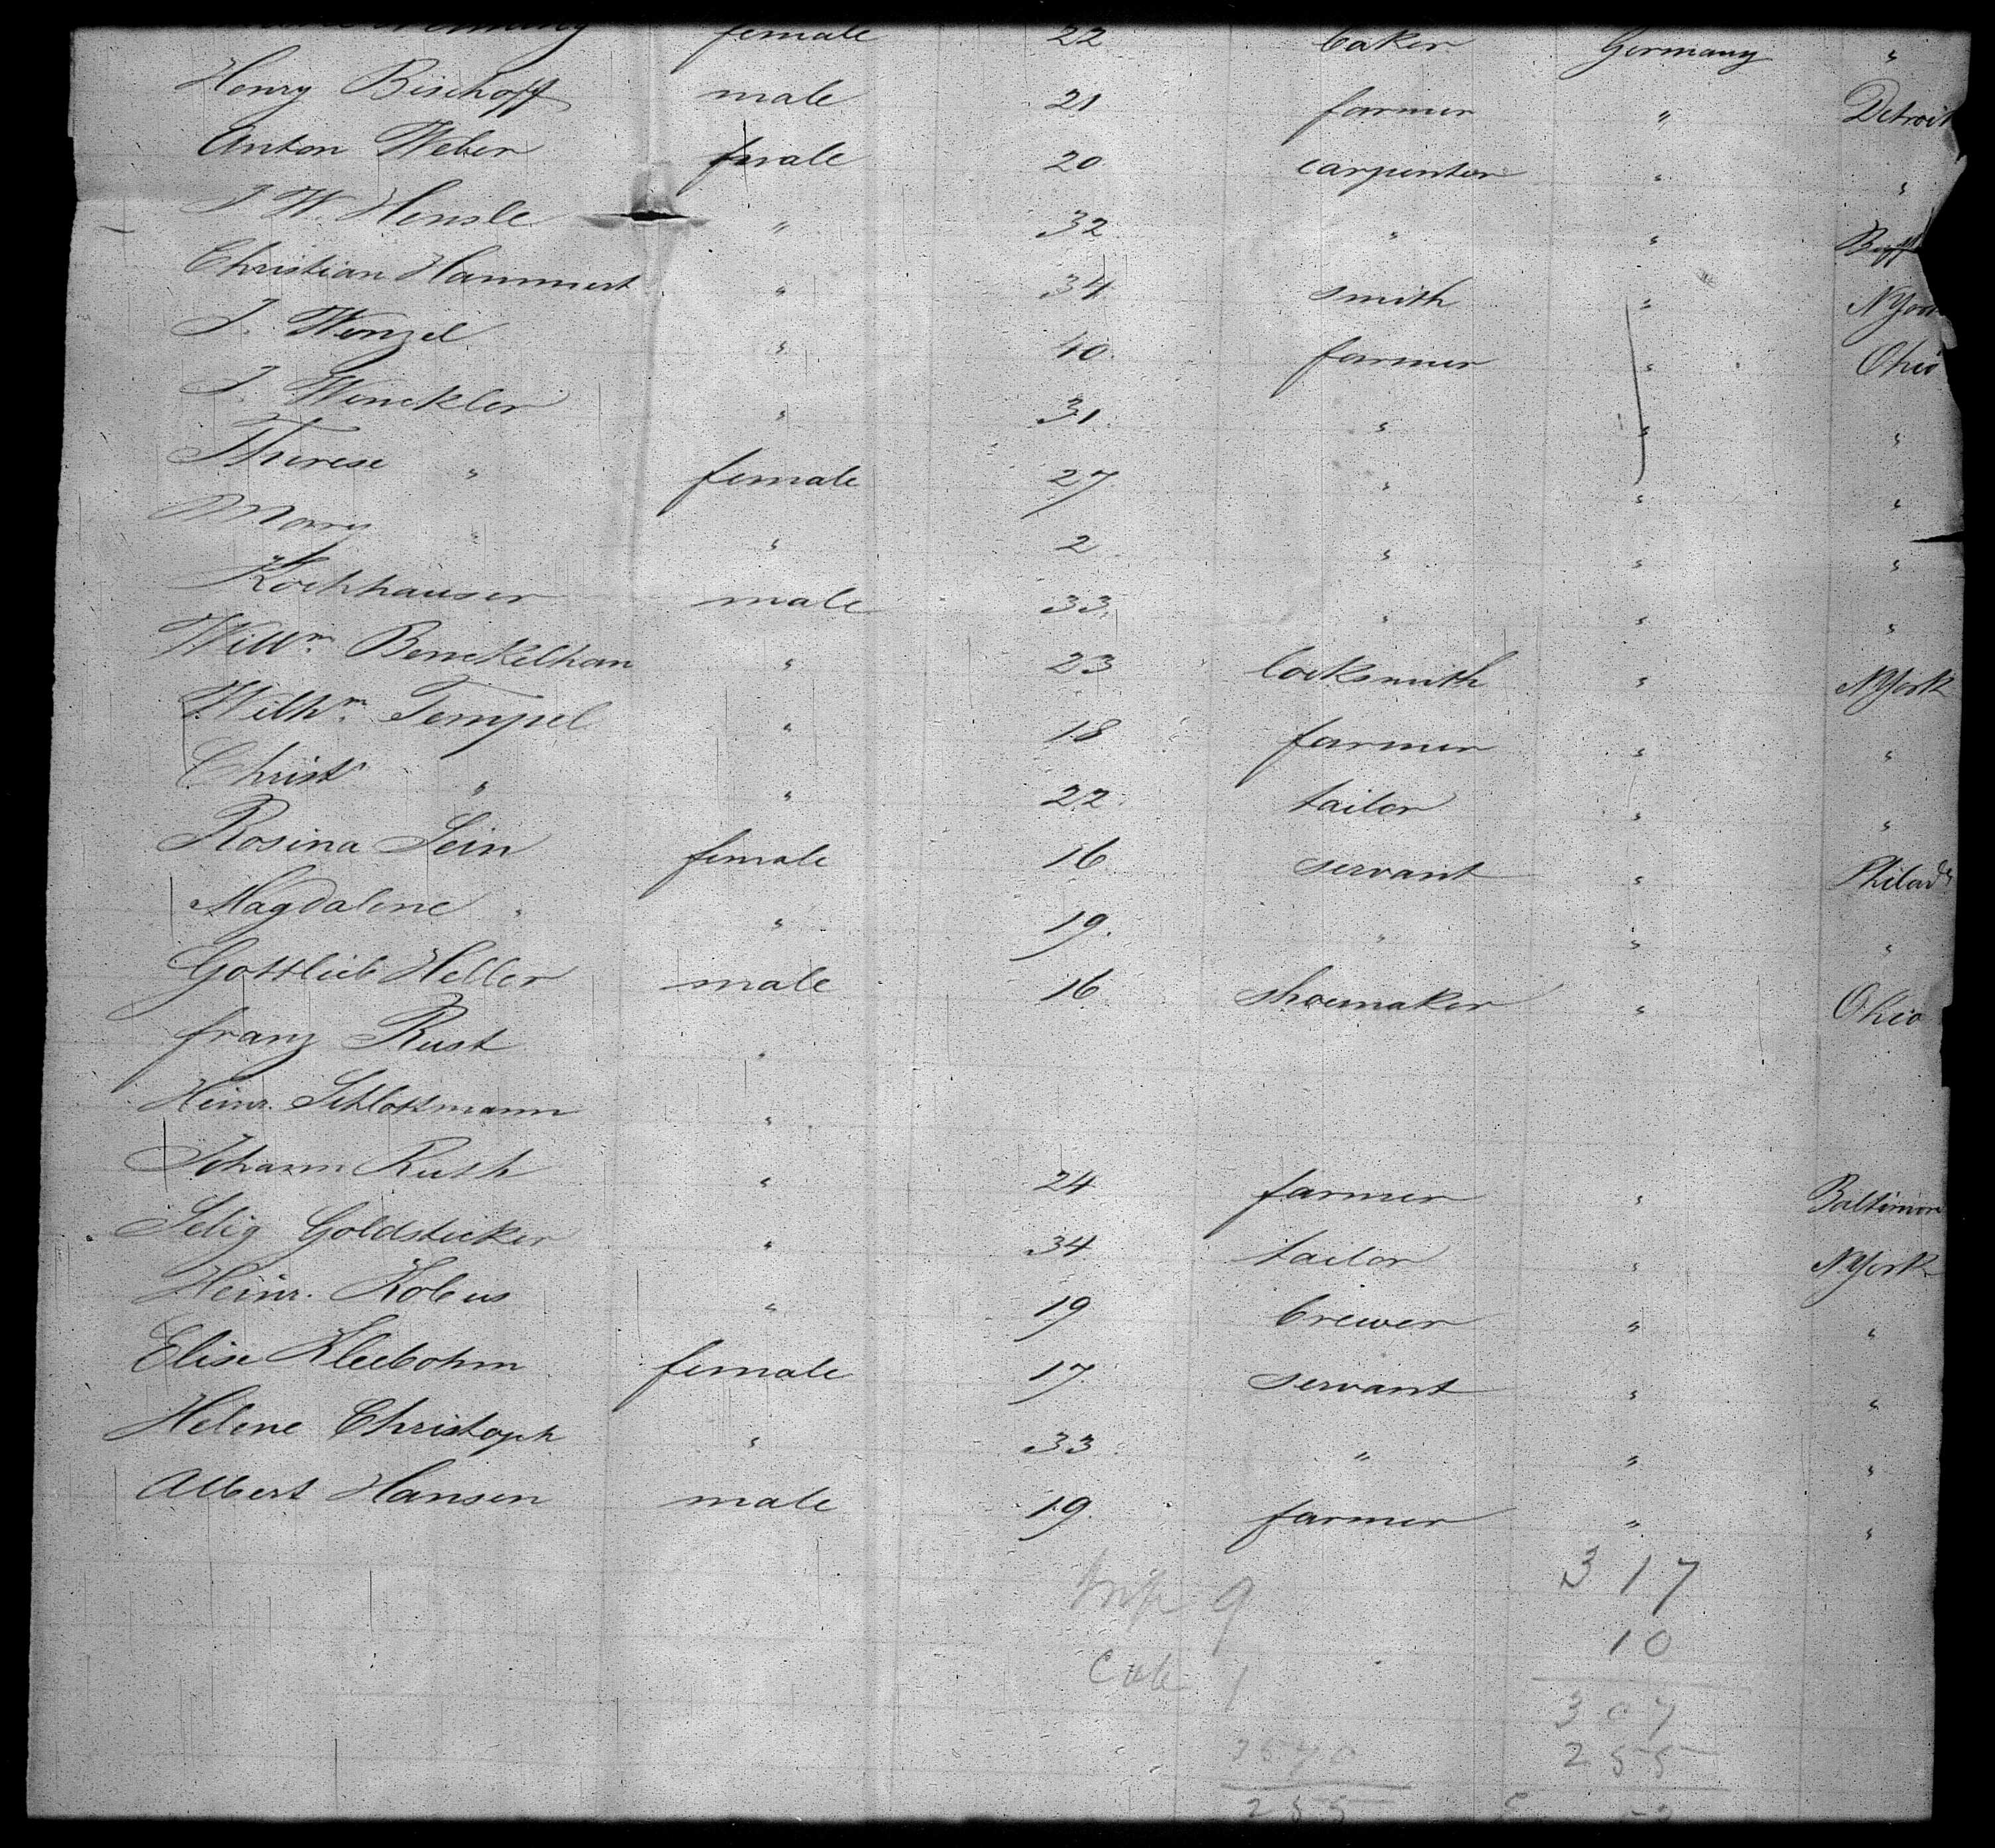 female 22 baker Germany "
Henry Bischoff male 21 farmer " Detroit
Anton Weber male 20 carpenter " "
J W. Hensle " 32 " " Buff
Christian Hammert " 34 smith " NYork
J. Wenzel " 40 farmer " Ohio
J. Winckler " 31 " " "
Therese " female 27 " " "
Mary " " 2 " " "
Kochhauser male 33 " " "
Willm. Benckelhan " 23 locksmith " NYork
Wilhm. Tempel " 18 farmer " "
Christ. " " 22 tailor " "
Rosina Sein female 16 servant " Philada
Magdalene " " 19. " " "
Gottlieb Heller male 16 shoemaker " Ohio
Franz Rust "
Heinr. Schlottmann "
Johann Rusth " 24 farmer " Baltimore
Selig Goldsticker " 34 tailor " NYork
Heinr. Kobus " 19 brewer " "
Elise Kleebohm female 17. servant " "
Helene Christoph " 33 " " "
Albert Hansen male 19. farmer " "
317
9
10
1
307
255
255